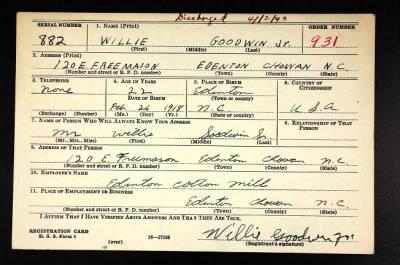 Discharged 4/2/43
SERIAL NUMBER 1. NAME (Print) ORDER NUMBER
882 WILLIE GOODWIN Jr. 931
(First) (Middle) (Last)
2. ADDRESS (Print)
120 E. FREEMASON EDENTON CHOWAN N.C.
(Number and street or R. F. D. number) (Town) (County) (State)
3. TELEPHONE 4. AGE IN YEARS 5. PLACE OF BIRTH 6. COUNTRY OF CITIZENSHIP
None 22 Edenton
DATE OF BIRTH (Town or county)
Feb 26 1918 N.C U S A
(Exchange) (Number) (Mo.) (Day) (Yr.) (State or country)
7. NAME OF PERSON WHO WILL ALWAYS KNOW YOUR ADDRESS 8. RELATIONSHIP OF THAT PERSON
Mr Willie Goodwin Sr.
(Mr., Mrs., Miss) (First) (Middle) (Last)
9. ADDRESS OF THAT PERSON
120 E. Freemason Edenton Chowan N.C.
(Number and street or R. F. D. number) (Town) (County) (State)
10. EMPLOYER'S NAME
Edenton cotton mill
11. PLACE OF EMPLOYMENT OR BUSINESS
Edenton Chowan N.C.
(Number and street or R. F. D. number) (Town) (County) (State)
I AFFIRM THAT I HAVE VERIFIED ABOVE ANSWERS AND THAT THEY ARE TRUE.
REGISTRATION CARD
D. S. S. Form 1 (over) 16—17105
Willie Goodwin Jr
(Registrant's signature)